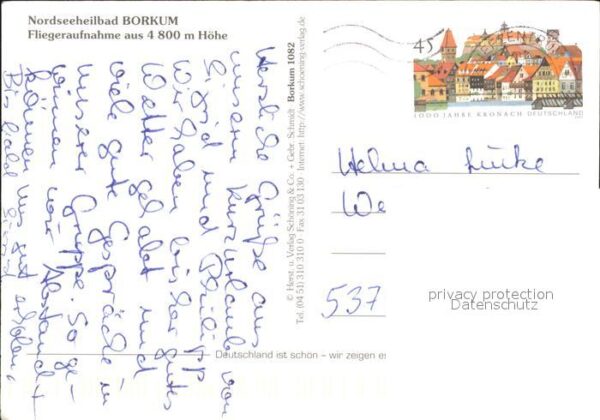 Nordseeheilbad BORKUM
Fliegeraufnahme aus 4 800 m Höhe
Herzliche Grüße aus
unserm Kurzurlaub von
Sigrid und Philipp
Wir haben bisher gutes
Wetter gehabt und
viele gute Gespräche in
unserer Gruppe. So ge-
winnen wir Abstand +
können uns gut erholen.
Bis bald
© Herst. u. Verlag Schöning & Co. + Gebr. Schmidt Borkum 1082
Tel. (04 51) 310 310 0 · Fax 31 03 130 Internet: http://www.schoening-verlag.de
45
1000 JAHRE KRONACH DEUTSCHLAND
Helma
We
537
privacy protection
Datenschutz
Deutschland ist schön – wir zeigen es